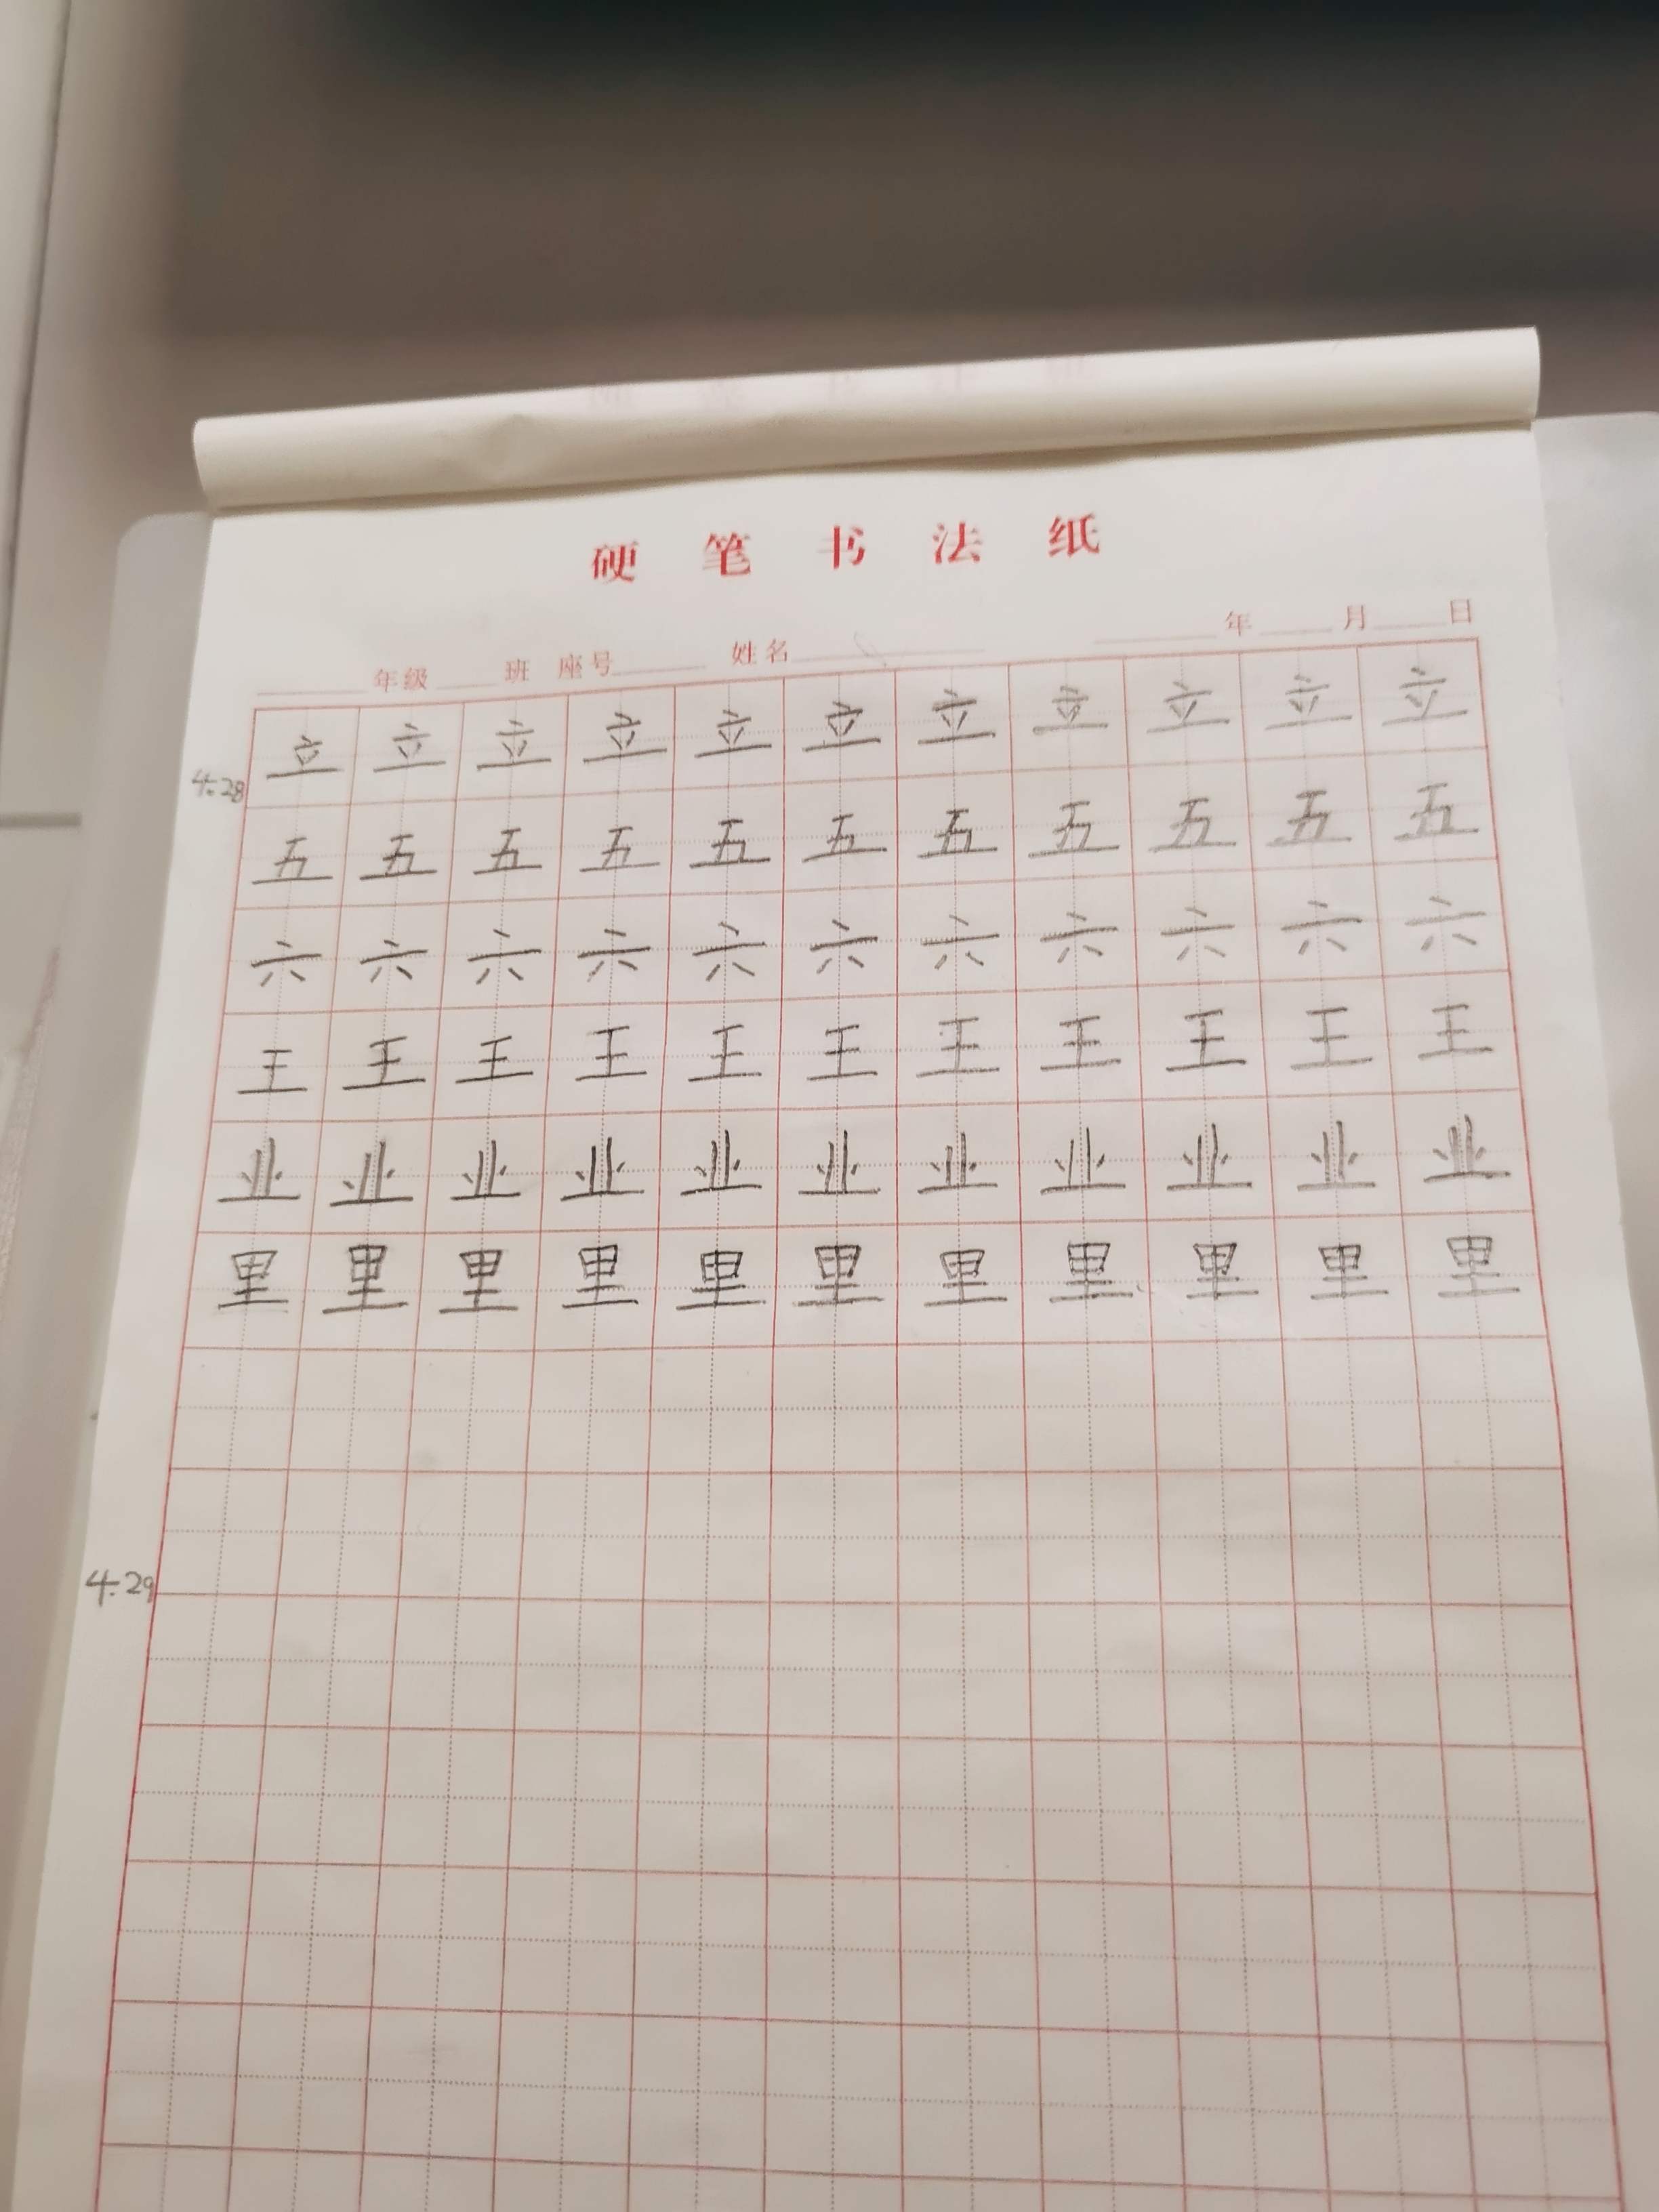 硬笔书法纸
年级 班 座号 姓名 年 月 日
立立立立立立立立立立立
4.28
五五五五五五五五五五五
六六六六六六六六六六六
王王王王王王王王王王王
业业业业业业业业业业业
里里里里里里里里里里里
4.29